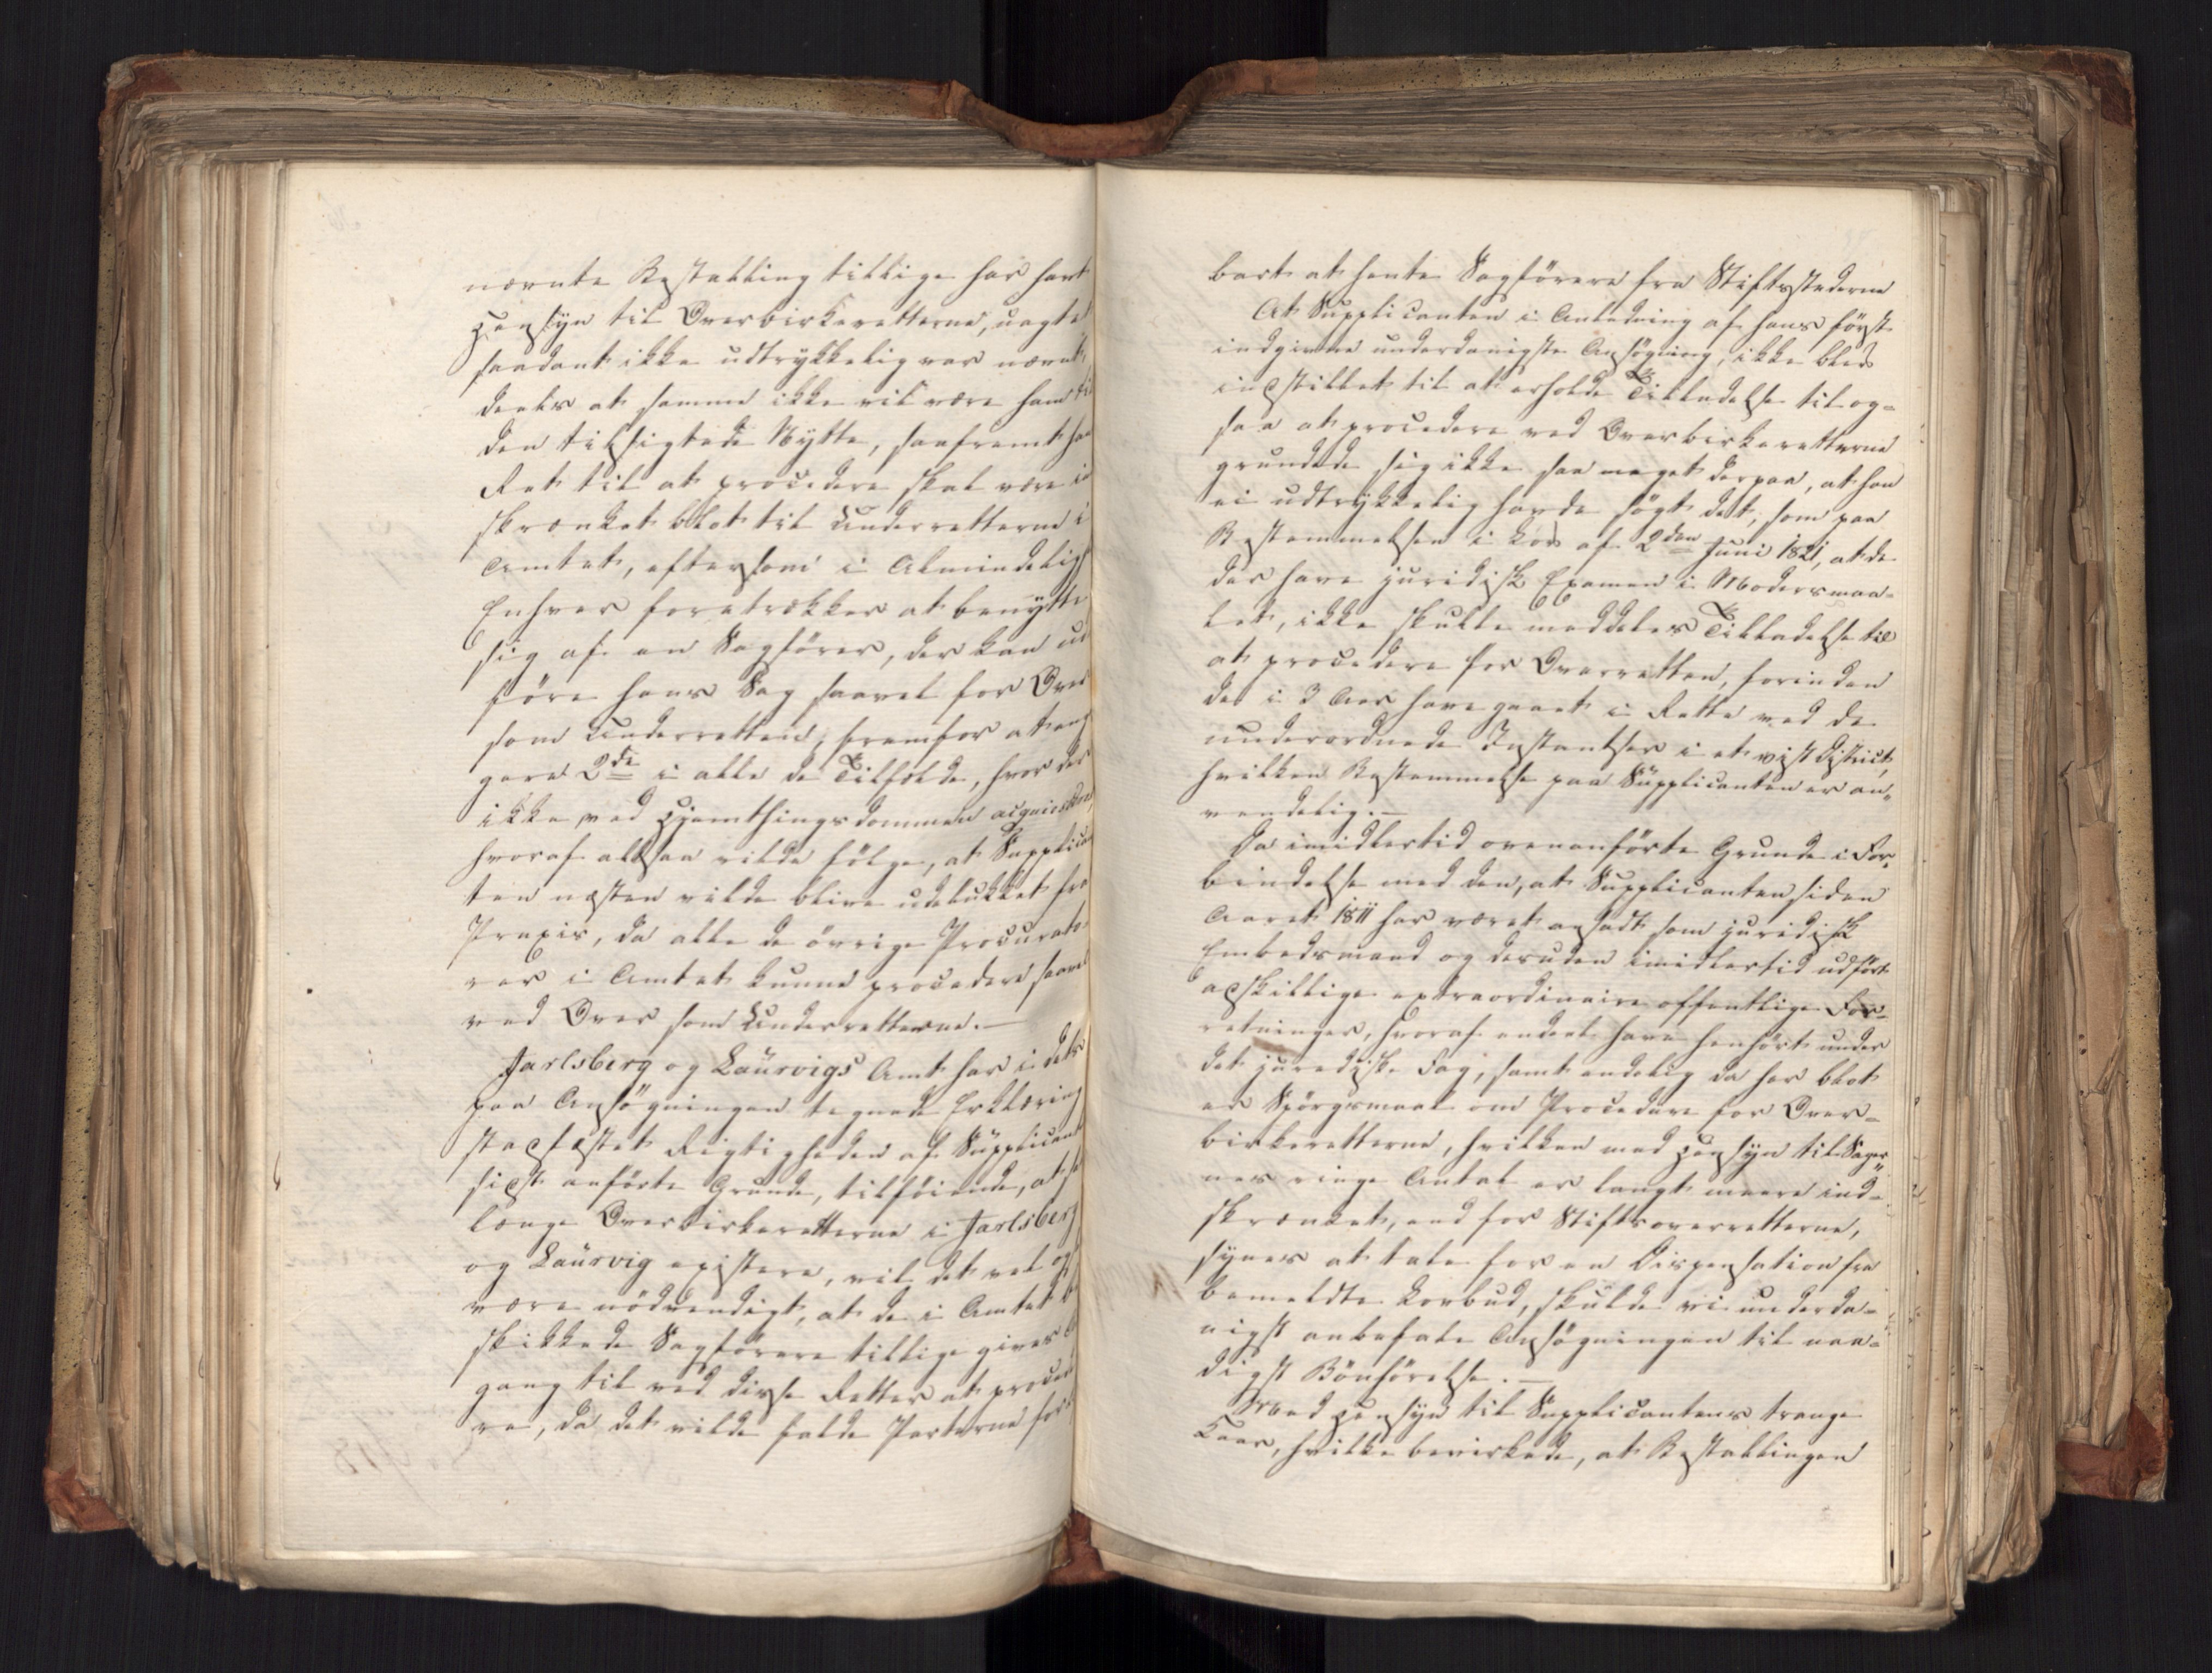 nævnte Bestalling tillige har havt
Hensyn til Overbirkeretterne, uagtet
saadant ikke udtrykkelig var nævnt,
deels at samme ikke vil være ham til
den tilsigtede Nytte, saafremt hans
Ret til at procedere skal være ind
skrænket blot til Underretterne i
Amtet, eftersom i Almindelighed
Enhver foretrækker at benytte
sig af en Sagfører, der kan ud
føre hans Sag saavel for Over
som Underretten, fremfor at an
tage 2de i alle de Tilfælde, hvor der
ikke ved Hjemthingsdommen acquiesceres
hvoraf altsaa vilde følge, at Supplican
ten næsten vilde blive udelukket fra
Praxis, da alle de övrige Procurato
rer i Amtet kunne procedere saavel
ved Over som Underretterne.—
Jarlsberg og Laurvigs Amt har i dets
paa Ansøgningen tegnede Erklæring
stadfæstet Rigtigheden af Supplicantens
sidst anförte Grunde, tilføiende, at saa
længe Overbirkeretterne i Jarlsberg
og Laurvig existere, vil det vel og
være nödvendigt, at de i Amtet be
skikkede Sagförere tillige gives Ad
gang til ved disse Retter at procede
re, da det vilde falde Parterne kost
bart at hente Sagförere fra Stiftsstæderne
At Supplicanten i Anledning af hans först
indgivne underdanigste Ansögning, ikke blev
indstillet til at erholde Tilladelse til og-
saa at procedere ved Overbirkeretterne
grundede sig ikke saa meget derpaa, at han
ei udtrykkelig havde søgt det, som paa
Bestemmelsen i Lov af 2den Juni 1821, at de
der have juridisk Examen i Modersmaa-
let, ikke skulle meddeles Tilladelse til
at procedere for Overretten, forinden
de i 3 Aar have gaaet i Rette ved de
underordnede Instantser i et vist District,
hvilken Bestemmelse paa Supplicanten er an-
vendelig.—
Da imidlertid ovenanförte Grunde i For-
bindelse med den, at Supplicanten siden
Aaret 1811 har været ansadt som juridisk
Embedsmand og desuden imidlertid udfört
adskillige extraordinaire offentlige For-
retninger, hvoraf endeel have henhört under
det juridiske Fag, samt endelig da her blot
er Spörgsmaal om Procedure for Over-
birkeretterne, hvilken med Hensyn til Sager-
nes ringe Antal er langt meere ind-
skrænket, end for Stiftsoverretterne,
synes at tale for en Dispensation fra
bemeldte Lovbud, skulde vi underda-
nigst anbefale Ansögningen til naa-
digst Bönhörelse.—
Med Hensyn til Supplicantens trange
Kaar, hvilke bevirkede, at Bestallingen